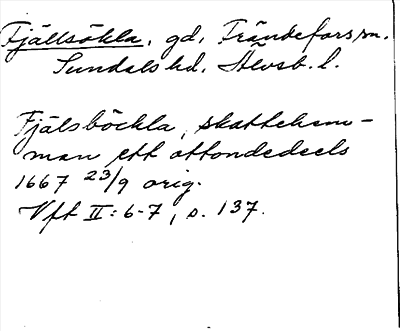 Fjällsökla, gd, Frändefors sn.
Sundals hd, Älvsb. l.
Fjälsböckla, skattehem-
man ett ottondedeels
1667 23/9 orig.
Vft II: 6-7, s. 137.